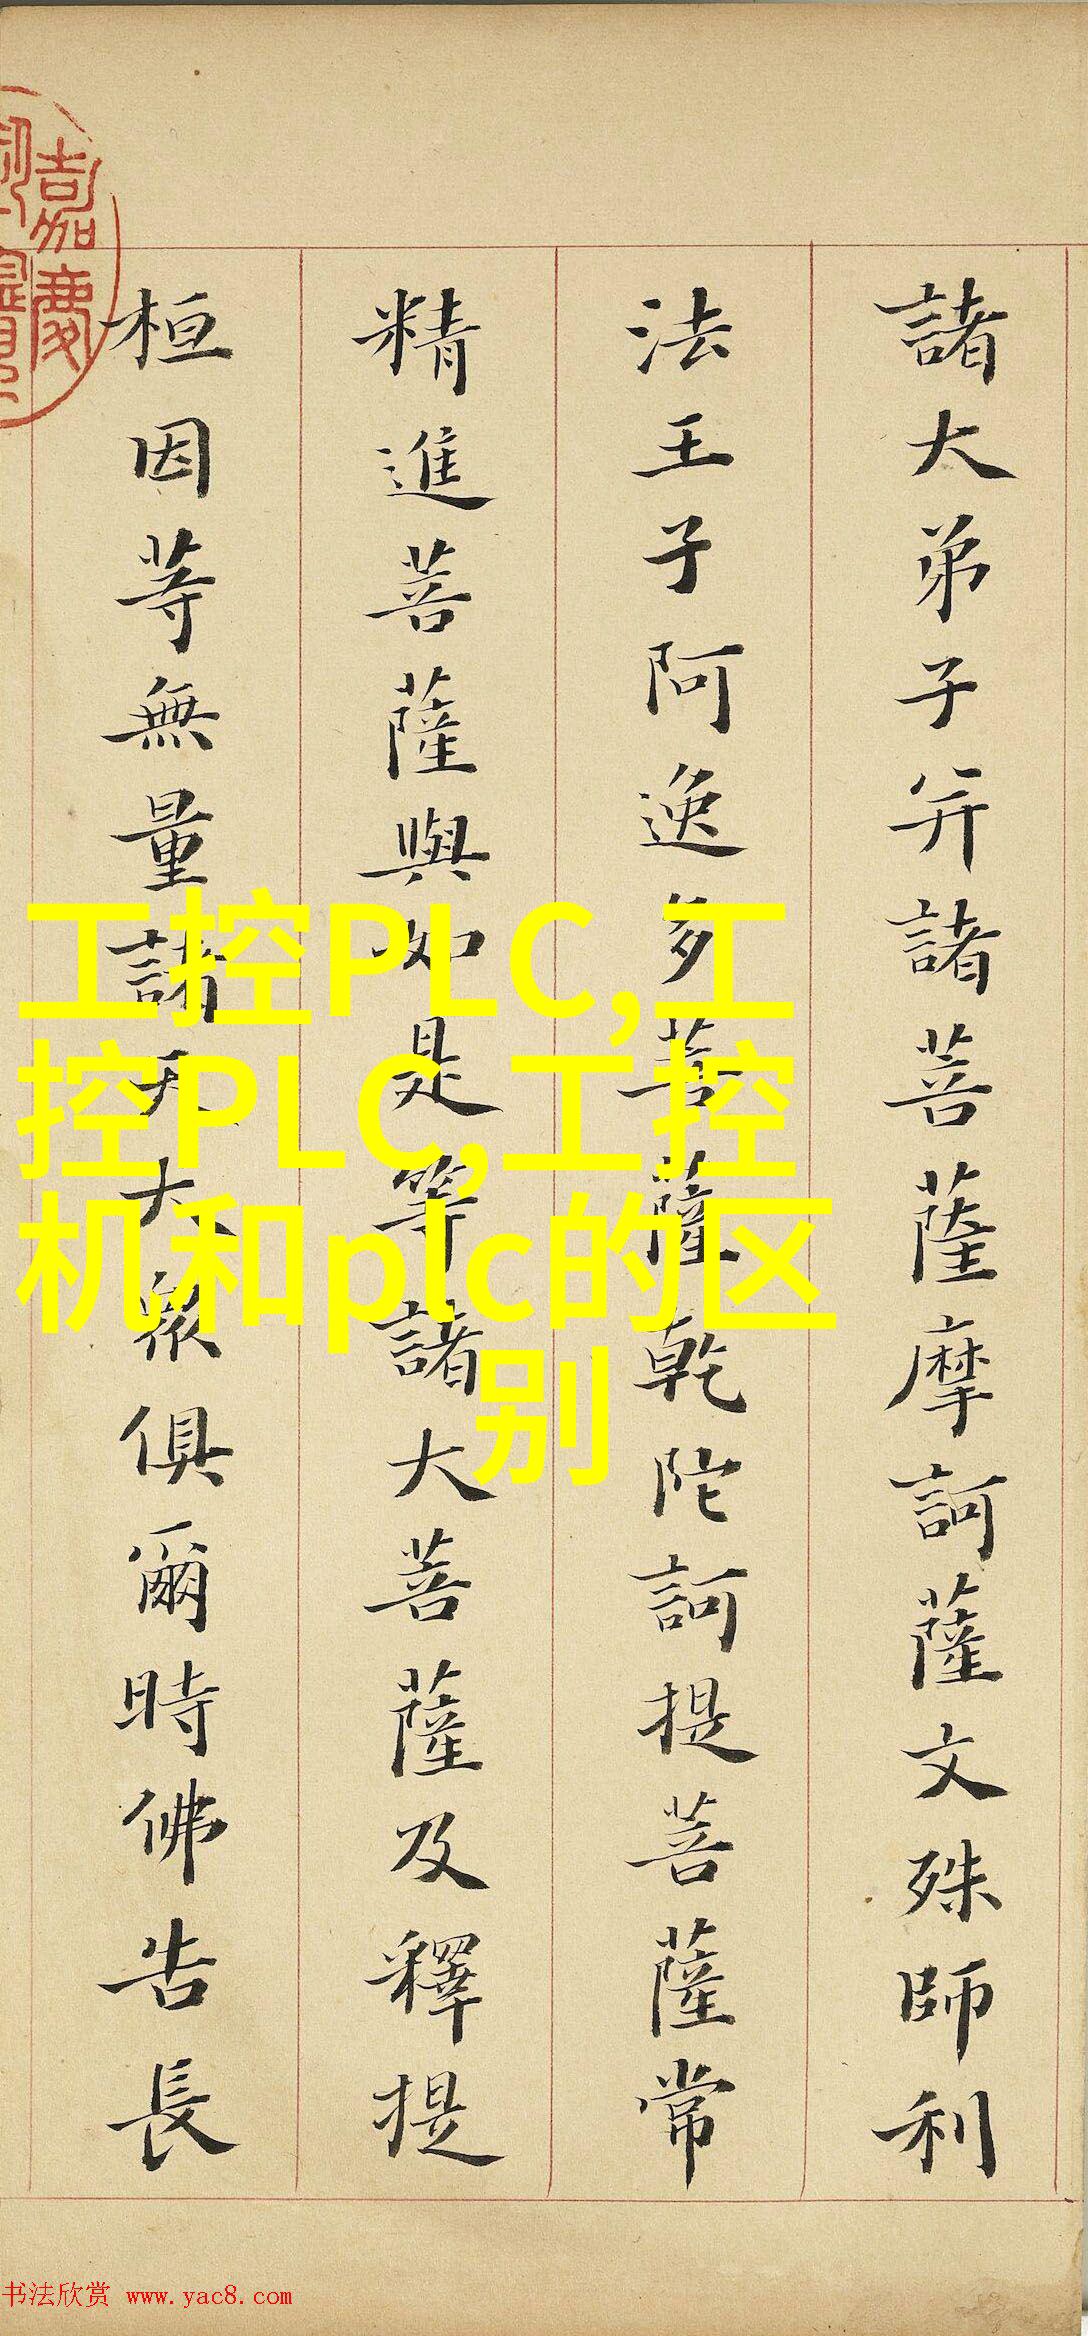 諸大弟子并諸菩薩摩訶薩文殊師利
法王子阿逸多菩薩乾陀訶提菩薩常
精進菩薩與如是等諸大菩薩及釋提
桓因等無量諸天大衆俱爾時佛告長
嘉慶
工控PLC,工
控PLC,工控
机和plc的区
别
书法欣赏 www.yac8.com